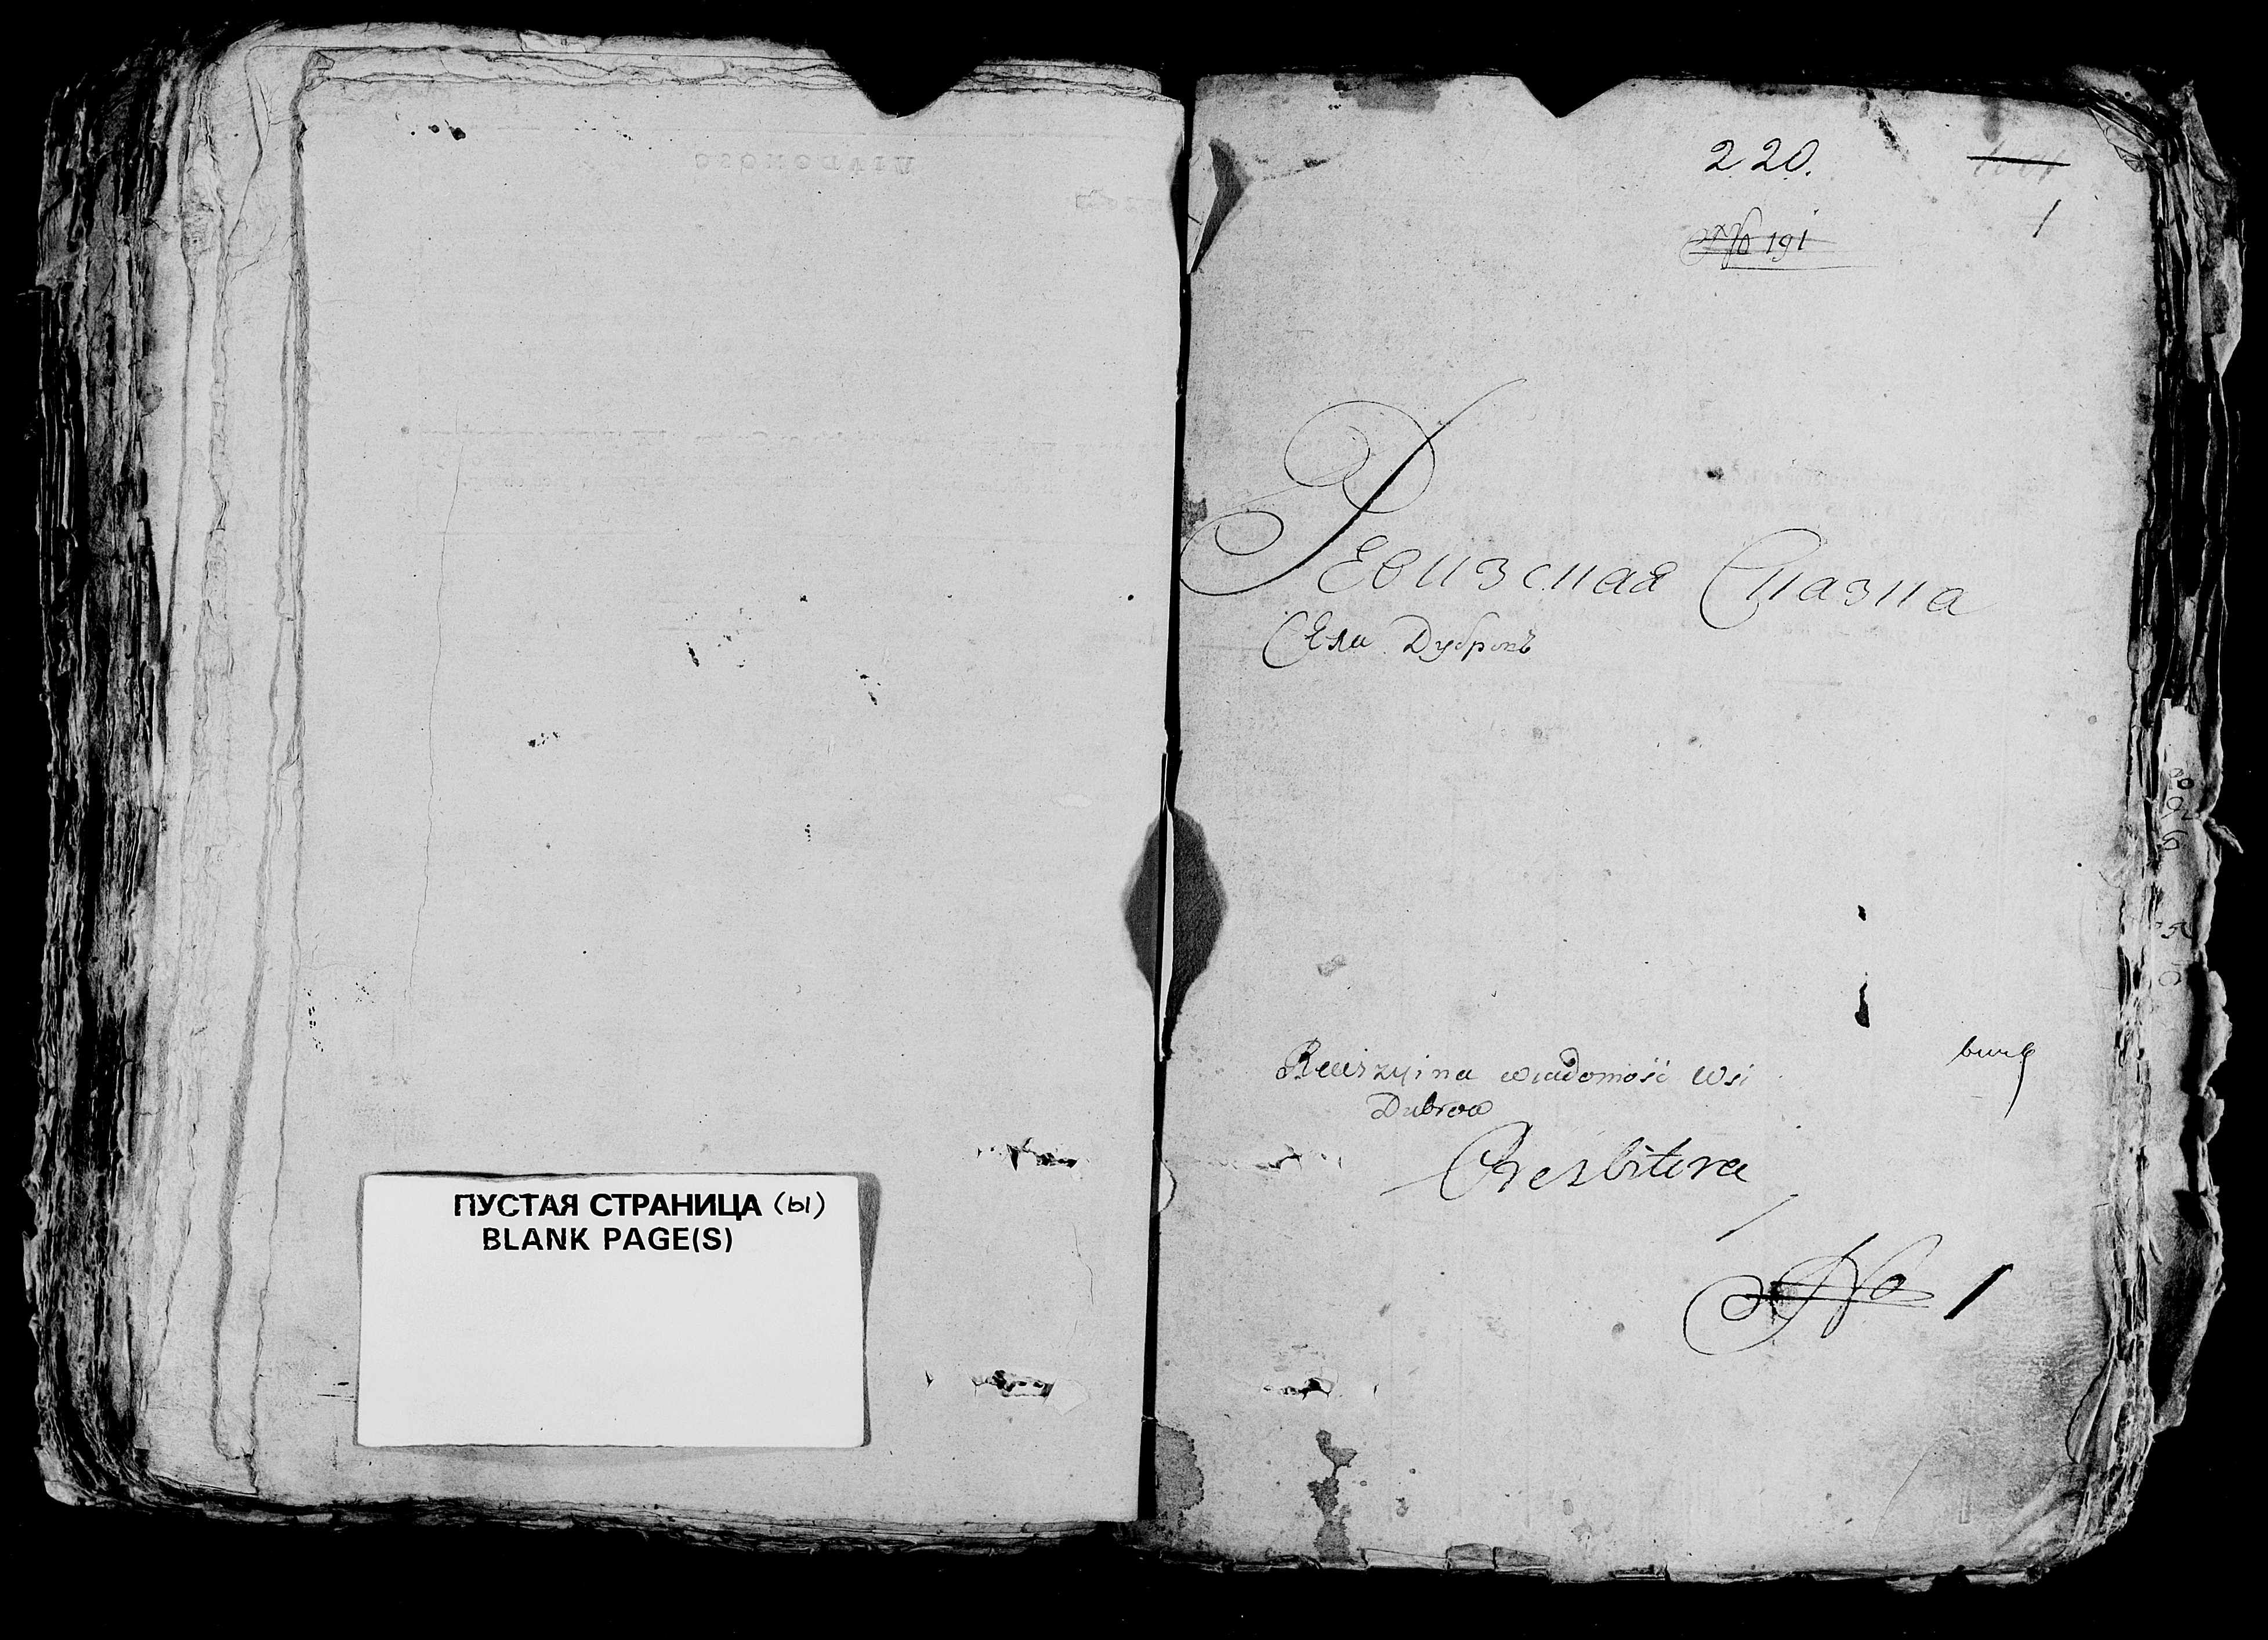 ПУСТАЯ СТРАНИЦА (ы)
BLANK PAGE(S)
220.
1
No 191
Ревизская Сказка
Села Дубровъ
Rewizyina wiadomość Wsi
Dubrow
Presbitera
No 1